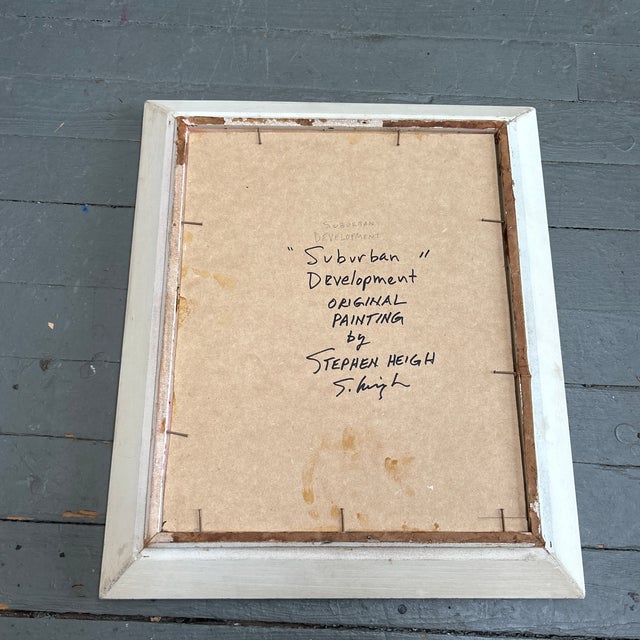 SUBURBAN
DEVELOPMENT
"Suburban"
Development
ORIGINAL
PAINTING
by
STEPHEN HEIGH
S. Heigh